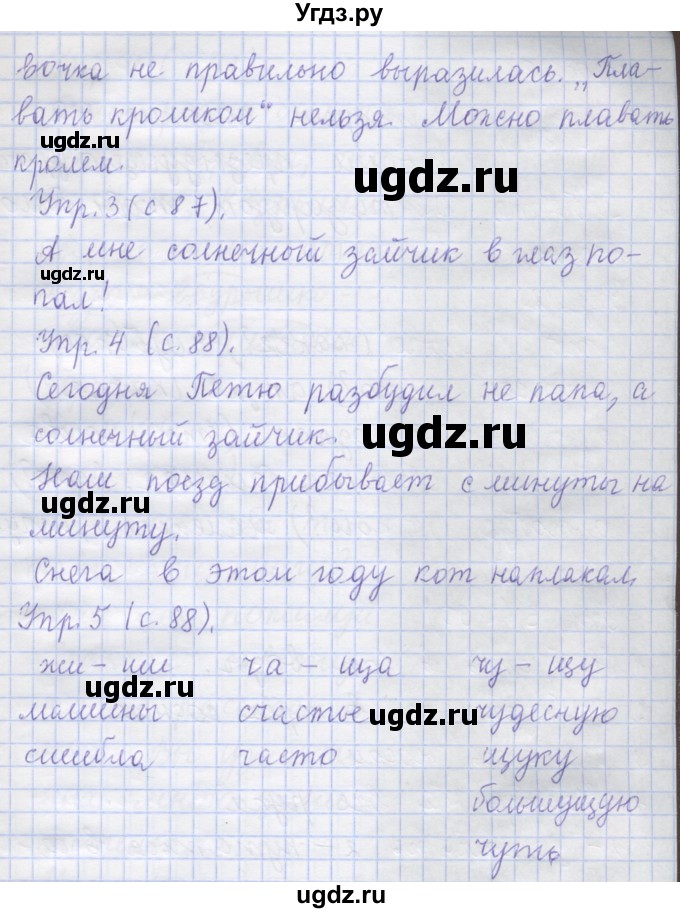 Угдз.ру
вочка не правильно выразилась. „Пла-
вать кроликом“ нельзя. Можно плавать
ugdz.ru
кролем.
ugdz.ru
Упр. 3 (с 87).
А мне солнечный зайчик в глаз по-
ugdz.ru
пал!
Упр. 4 (с. 88).
Сегодня Петю разбудил не папа, а
солнечный зайчик.
ugdz.ru
Наш поезд прибывает с минуты на
ugdz.ru
минуту.
Снега в этом году кот наплакал.
Упр. 5 (с. 88).
жи - ши ча - ща чу - щу
ugdz.ru
машины счастье чудесную
ugdz.ru
сшибла часто щуку
большущую
чуть
ugdz.ru